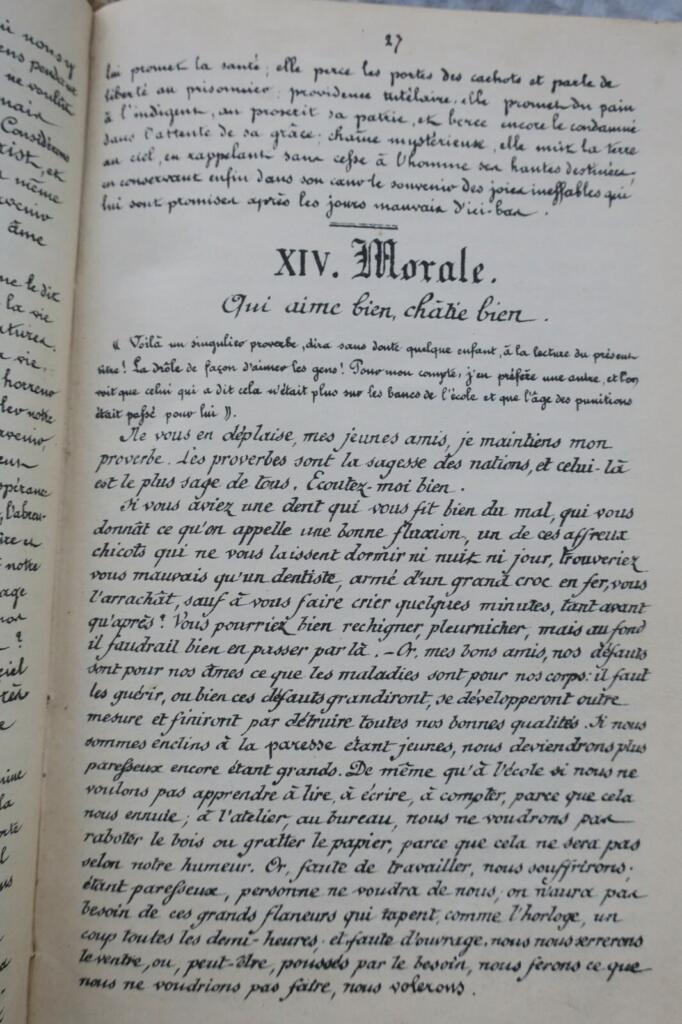 27
lui promet la santé; elle perce les portes des cachots et parle de
liberté au prisonnier; providence tutélaire, elle promet du pain
à l'indigent, au proscrit sa patrie, et berce encore le condamné
dans l'attente de sa grâce; chaîne mystérieuse, elle unit la terre
au ciel, en rappelant sans cesse à l'homme ses hautes destinées,
en conservant enfin dans son cœur le souvenir des joies ineffables qui
lui sont promises après les jours mauvais d'ici-bas.
XIV. Morale.
Qui aime bien, châtie bien.
« Voilà un singulier proverbe, dira sans doute quelque enfant, à la lecture du présent
titre! La drôle de façon d'aimer les gens! Pour mon compte, j'en préfère une autre, et l'on
voit que celui qui a dit cela n'était plus sur les bancs de l'école et que l'âge des punitions
était passé pour lui ».
Ne vous en déplaise, mes jeunes amis, je maintiens mon
proverbe. Les proverbes sont la sagesse des nations, et celui-là
est le plus sage de tous. Ecoutez-moi bien.
Si vous aviez une dent qui vous fît bien du mal, qui vous
donnât ce qu'on appelle une bonne fluxion, un de ces affreux
chicots qui ne vous laissent dormir ni nuit ni jour, trouveriez
vous mauvais qu'un dentiste, armé d'un grand croc en fer, vous
l'arrachât, sauf à vous faire crier quelques minutes, tant avant
qu'après? Vous pourriez bien rechigner, pleurnicher, mais au fond
il faudrail bien en passer par là. - Or, mes bons amis, nos défauts
sont pour nos âmes ce que les maladies sont pour nos corps: il faut
les guérir, ou bien ces défauts grandiront, se développeront outre
mesure et finiront par détruire toutes nos bonnes qualités. Si nous
sommes enclins à la paresse étant jeunes, nous deviendrons plus
paresseux encore étant grands. De même qu'à l'école si nous ne
voulons pas apprendre à lire, à écrire, à compter, parce que cela
nous ennuie; à l'atelier, au bureau, nous ne voudrons pas
raboter le bois ou gratter le papier, parce que cela ne sera pas
selon notre humeur. Or, faute de travailler, nous souffrirons;
étant paresseux, personne ne voudra de nous; on n'aura pas
besoin de ces grands flaneurs qui tapent, comme l'horloge, un
coup toutes les demi-heures, et faute d'ouvrage, nous nous serrerons
le ventre, ou, peut-être, poussés par le besoin, nous ferons ce que
nous ne voudrions pas faire, nous volerons.